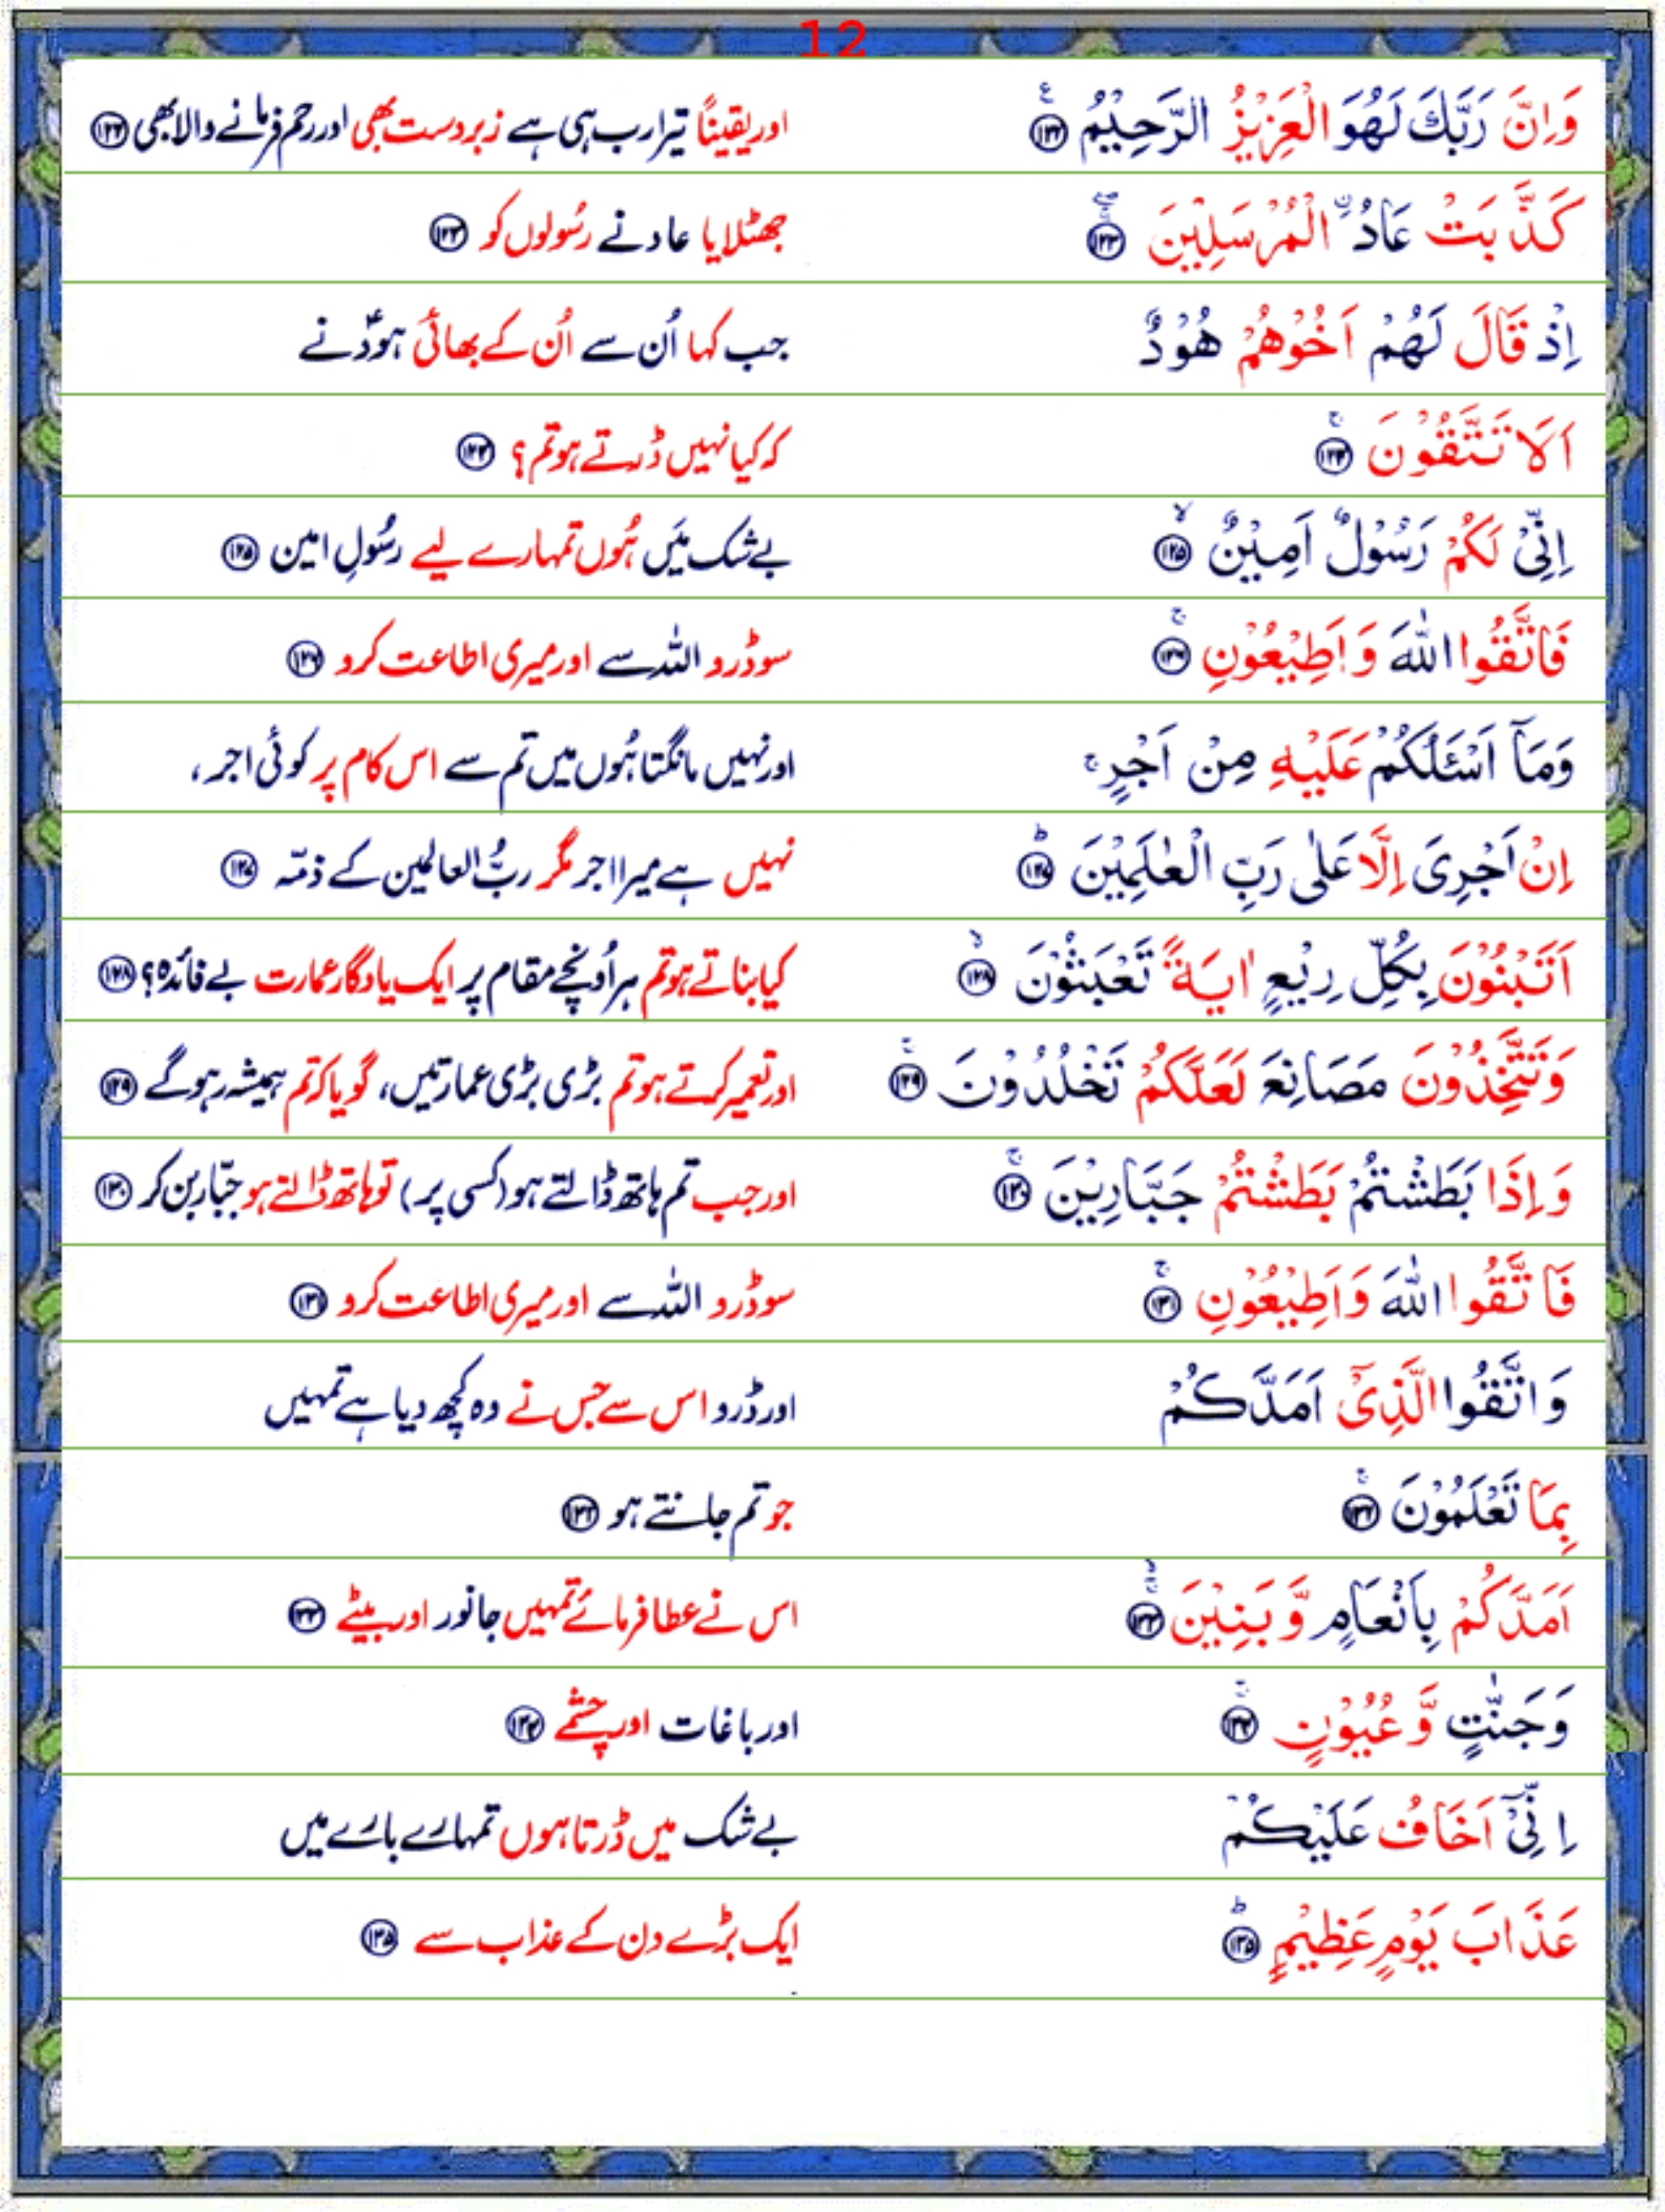 12
وَاِنَّ رَبَّكَ لَهُوَ الْعَزِيْزُ الرَّحِيْمُ ۱۲۲ اور یقیناً تیرا رب ہی ہے زبردست بھی اور رحم فرمانے والا بھی ۱۲۲
كَذَّبَتْ عَادُ ۨالْمُرْسَلِيْنَ ۱۲۳ جھٹلایا عاد نے رسُولوں کو ۱۲۳
اِذْ قَالَ لَهُمْ اَخُوْهُمْ هُوْدٌ جب کہا اُن سے اُن کے بھائی ہودؑ نے
اَلَا تَتَّقُوْنَ ۱۲۴ کہ کیا نہیں ڈرتے ہو تم؟ ۱۲۴
اِنِّیْ لَكُمْ رَسُوْلٌ اَمِيْنٌ ۱۲۵ بے شک مَیں ہُوں تمہارے لیے رسُولِ امین ۱۲۵
فَاتَّقُوا اللّٰهَ وَاَطِيْعُوْنِ ۱۲۶ سو ڈرو اللہ سے اور میری اطاعت کرو ۱۲۶
وَمَاۤ اَسْـَٔلُكُمْ عَلَيْهِ مِنْ اَجْرٍ ۚ اور نہیں مانگتا ہُوں میں تم سے اس کام پر کوئی اجر،
اِنْ اَجْرِیَ اِلَّا عَلٰی رَبِّ الْعٰلَمِيْنَ ۱۲۷ نہیں ہے میرا اجر مگر ربُّ العالمین کے ذمّہ ۱۲۷
اَتَبْنُوْنَ بِكُلِّ رِيْعٍ اٰيَةً تَعْبَثُوْنَ ۱۲۸ کیا بناتے ہو تم ہر اُونچے مقام پر ایک یادگار عمارت بے فائدہ؟ ۱۲۸
وَتَتَّخِذُوْنَ مَصَانِعَ لَعَلَّكُمْ تَخْلُدُوْنَ ۱۲۹ اور تعمیر کرتے ہو تم بڑی بڑی عمارتیں، گویا کہ تم ہمیشہ رہو گے ۱۲۹
وَاِذَا بَطَشْتُمْ بَطَشْتُمْ جَبَّارِيْنَ ۱۳۰ اور جب تم ہاتھ ڈالتے ہو (کسی پر) تو ہاتھ ڈالتے ہو جبّار بن کر ۱۳۰
فَاتَّقُوا اللّٰهَ وَاَطِيْعُوْنِ ۱۳۱ سو ڈرو اللہ سے اور میری اطاعت کرو ۱۳۱
وَاتَّقُوا الَّذِیْۤ اَمَدَّكُمْ اور ڈرو اس سے جس نے وہ کچھ دیا ہے تمہیں
بِمَا تَعْلَمُوْنَ ۱۳۲ جو تم جانتے ہو ۱۳۲
اَمَدَّكُمْ بِاَنْعَامٍ وَّبَنِيْنَ ۱۳۳ اس نے عطا فرمائے تمہیں جانور اور بیٹے ۱۳۳
وَجَنّٰتٍ وَّعُيُوْنٍ ۱۳۴ اور باغات اور چشمے ۱۳۴
اِنِّیْۤ اَخَافُ عَلَيْكُمْ بے شک میں ڈرتا ہوں تمہارے بارے میں
عَذَابَ يَوْمٍ عَظِيْمٍ ۱۳۵ ایک بڑے دن کے عذاب سے ۱۳۵